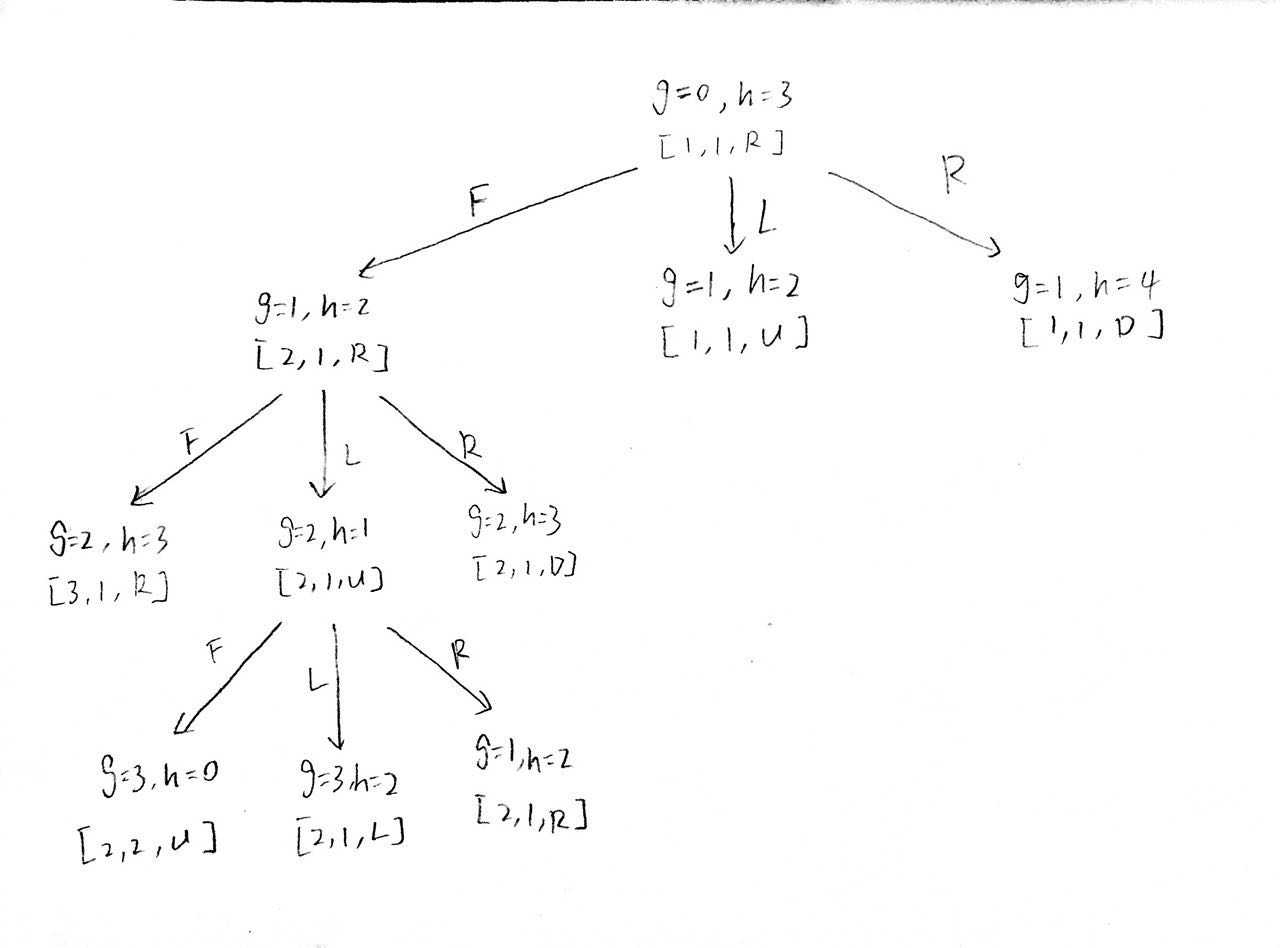 g=0, h=3
[1,1,R]
F
L
R
g=1, h=2
[2,1,R]
g=1, h=2
[1,1,U]
g=1, h=4
[1,1,D]
F
L
R
g=2, h=3
[3,1,R]
g=2, h=1
[2,1,U]
g=2, h=3
[2,1,D]
F
L
R
g=3, h=0
[2,2,U]
g=3, h=2
[2,1,L]
g=1, h=2
[2,1,R]